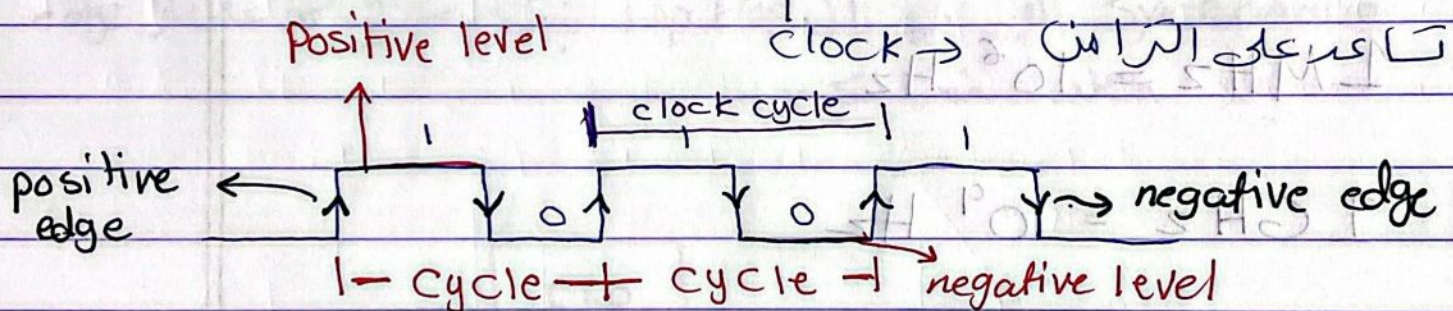 Positive level
clock → تساعد على التزامن
clock cycle
1 1 1
positive edge
0 0
negative edge
|— Cycle —+— Cycle —|
negative level
1 MHz = 10⁶ Hz
1 GHz = 10⁹ Hz